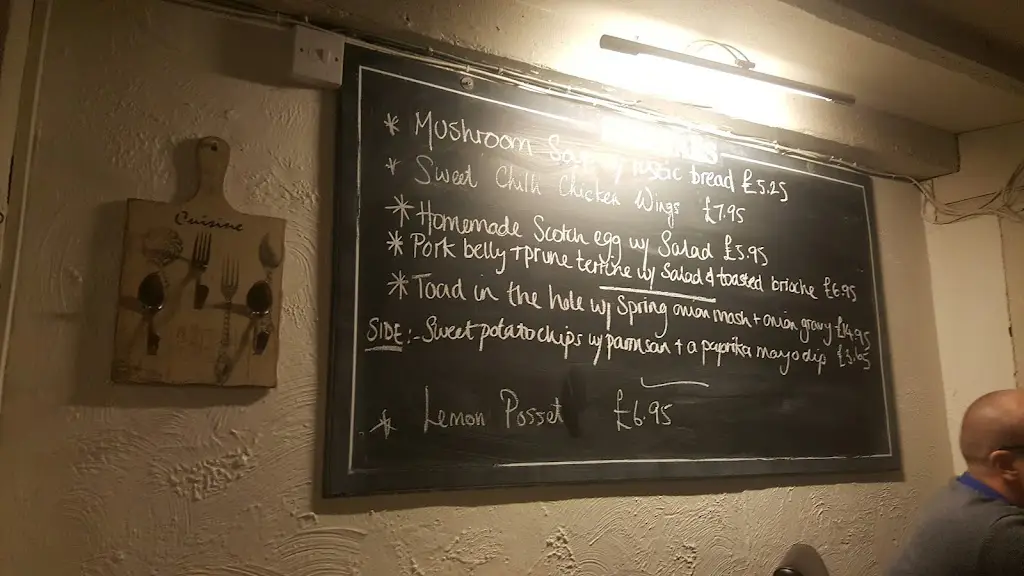 Cuisine
* Mushroom Soup w/ rustic bread £5.25
* Sweet Chilli Chicken Wings £7.95
* Homemade Scotch egg w/ Salad £5.95
* Pork belly + prune terrine w/ Salad & toasted brioche £6.95
* Toad in the hole w/ Spring onion mash + onion gravy £14.95
SIDE:- Sweet potato chips w/ parmsan + a paprika mayo dip £3.65
* Lemon Posset £6.95